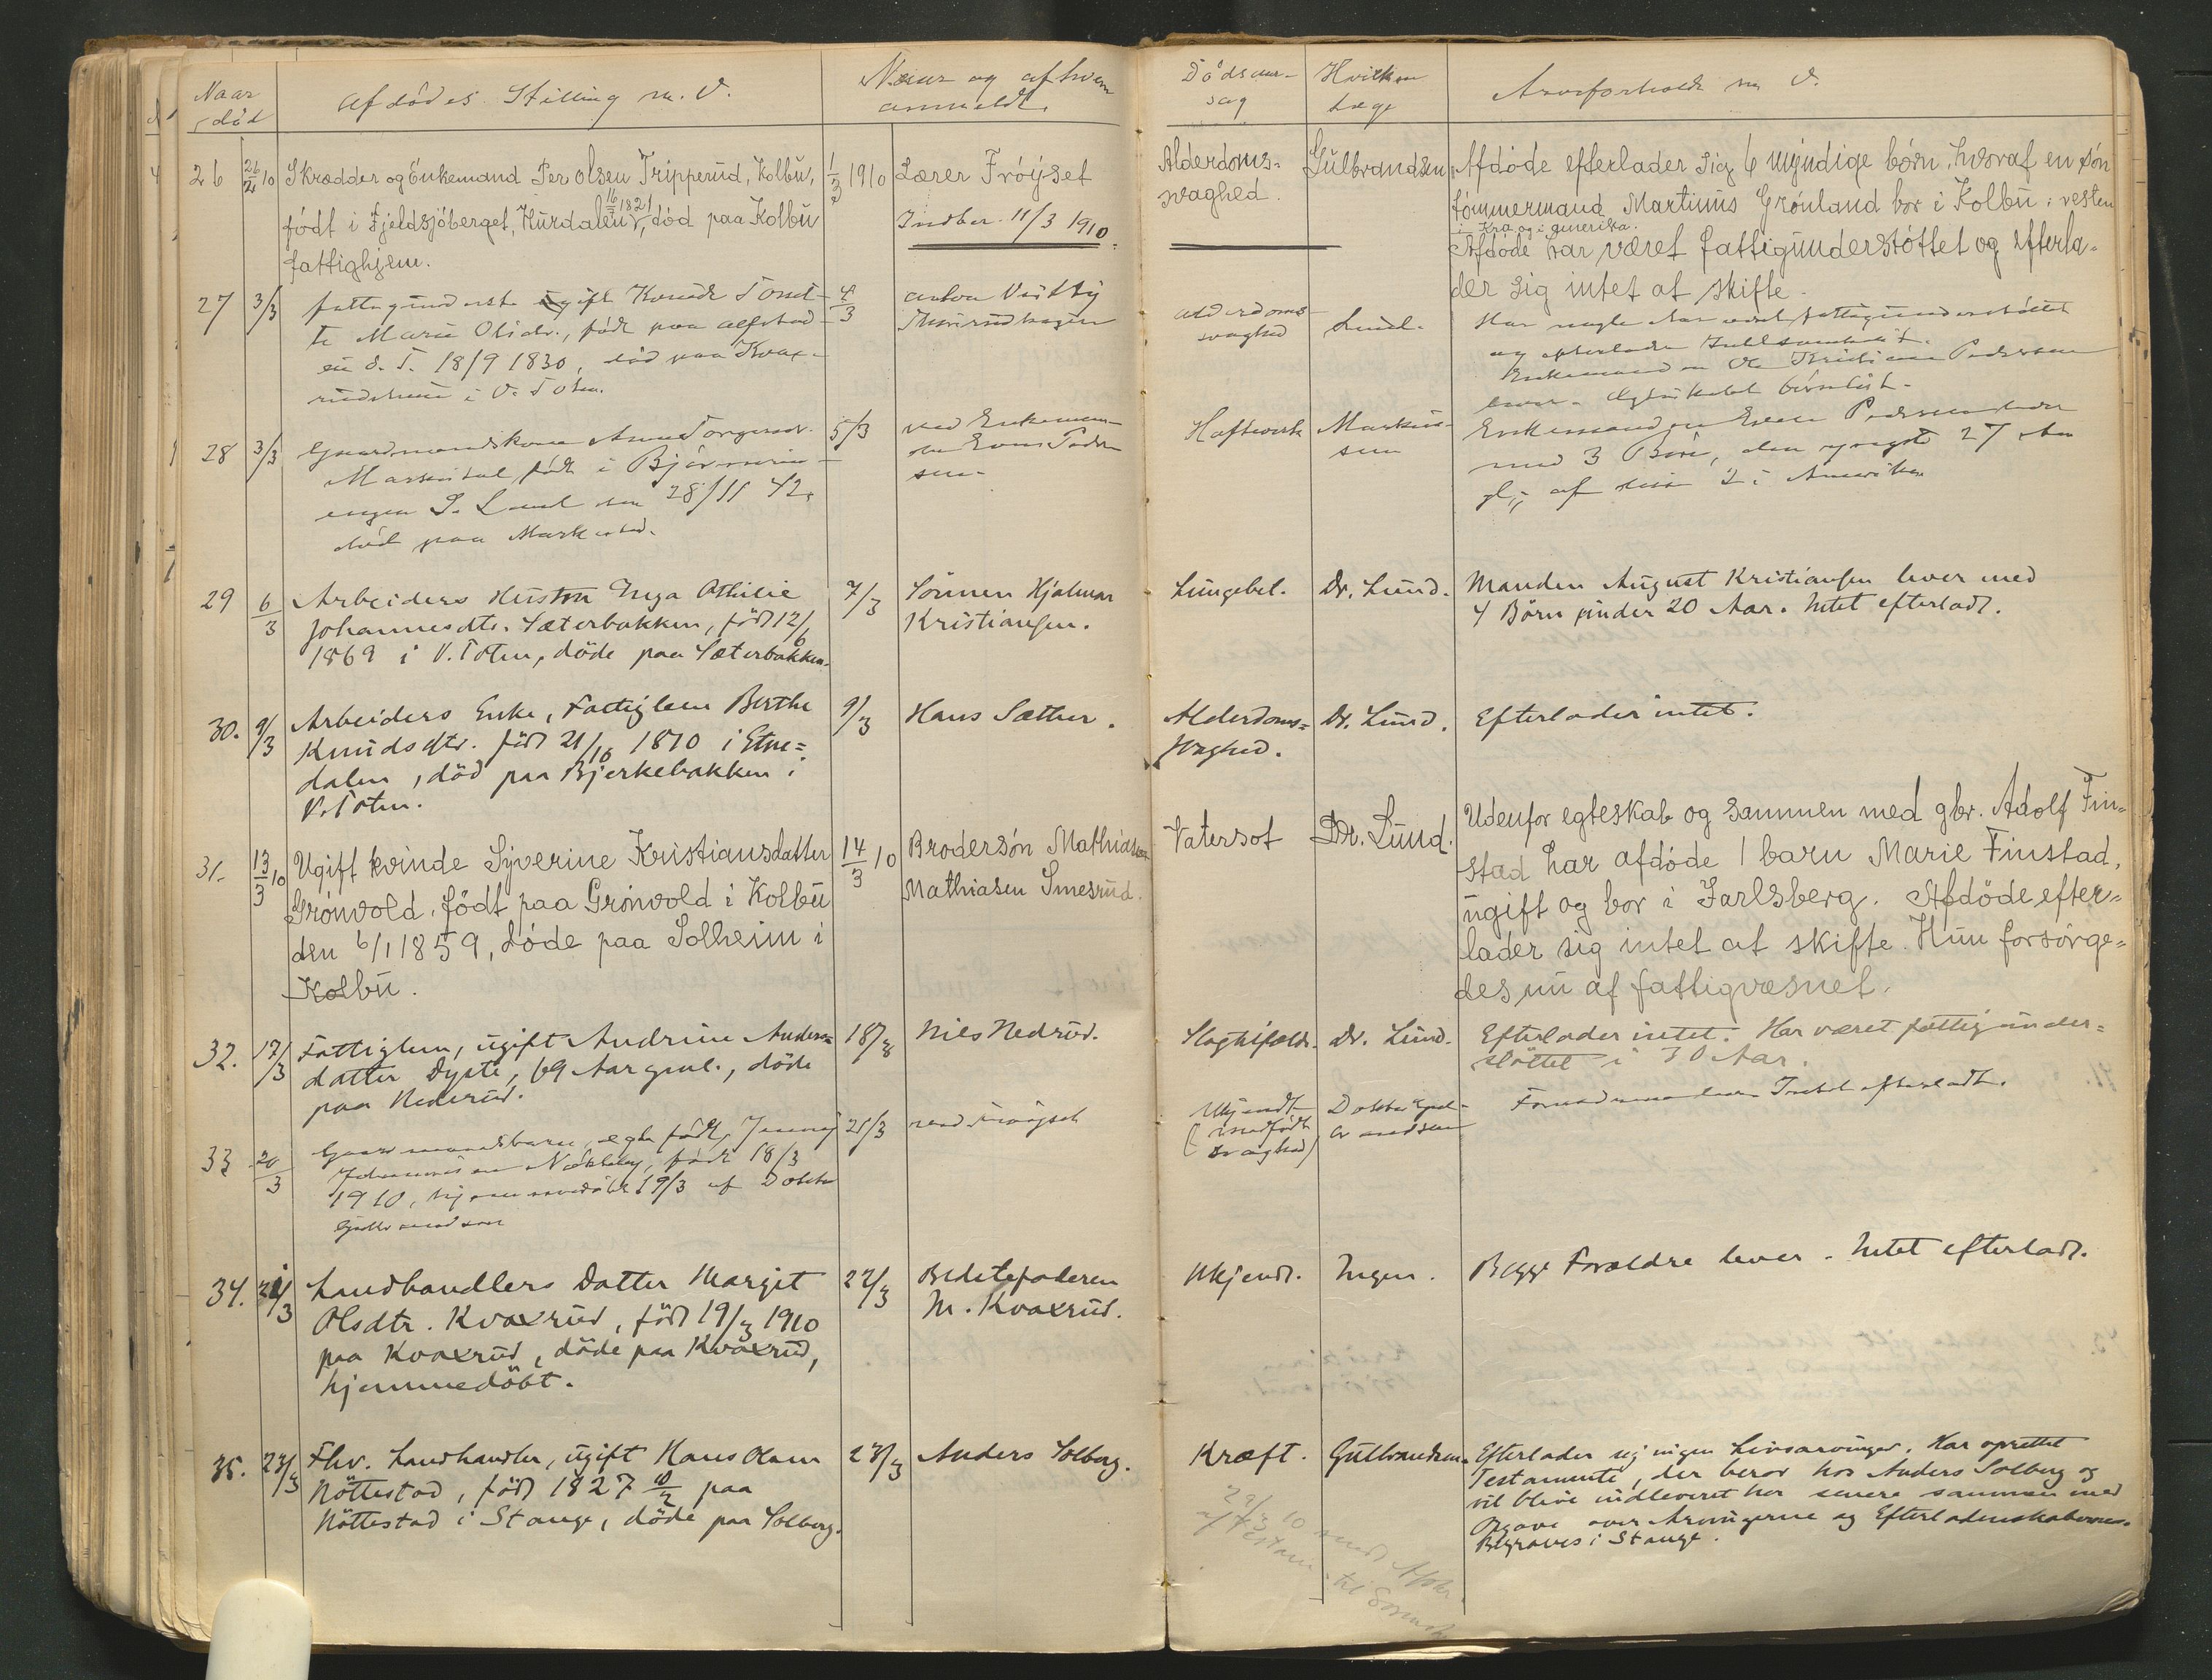 Naar
død
Afdødes Stilling m. V.
Naar og af hvem
anmeldt.
Dødsaar-
sag
Hvilken
Læge
Arveforholde m. V.
26
26/2 10
Skrædder og Enkemand Per Olsen Tripperud, Kolbu,
født i Fjeldsjøberget, Hurdalen, 1821, død paa Kolbu
fattighjem.
1/3 1910
Lærer Frøyset
Indber. 11/3 1910.
Alderdoms-
svaghed.
Gulbrandsen
Afdøde efterlader sig 6 myndige børn, hvoraf en søn
tømmermand Martinius Grønland bor i Kolbu; resten
i Kra og i Amerika.
Afdøde har været fattigunderstøttet og efterla-
der sig intet at skifte.
27
3/3
gift Kone
Marie Olsdr., født paa Alfstad
18/9 1830, død paa Kvax-
i V. Toten.
4/3
Anton Vestby
Alderdoms
svaghed
Lund.
Har nogle Aar været fattigunderstøttet
og efterlader
Enkemanden Ole Kristian Pedersen
lever. Ægteskabet børnløst.
28
3/3
Gaardmandskone Anne Torgersdr.
født i
S. Land den 28/11 42,
død paa Markestad.
5/3
ved Enkeman-
den Even Peder-
sen
Hoftverk
Markus-
sen
Enkemanden Even Pedersen lever
med 3 Børn, den yngste 27 Aar
gl., af disse 2 i Amerika
29
6/3
Arbeiders Hustru Inga Othilie
Johannesdtr. Sæterbakken, født 12/6
1869 i V. Toten, døde paa Sæterbakken.
7/3
Sønnen Hjalmar
Kristiansen.
Lungebet.
Dr. Lund.
Manden August Kristiansen lever med
4 Børn under 20 Aar. Intet efterladt.
30.
9/3
Arbeiders Enke, Fattiglem Berthe
Knudsdtr. født 21/10 1810 i Etne=
dalen, død paa Bjerkebakken i
V. Toten.
9/3
Hans Sæther.
Alderdoms=
svaghed.
Dr. Lund.
Efterlader intet.
31.
13/3 10
Ugift kvinde Syverine Kristiansdatter
Grønvold, født paa Grønvold i Kolbu
den 6/1 1859, døde paa Solheim i
Kolbu.
14/3 10
Brodersøn Mathias
Mathiasen Smesrud.
Vatersot
Dr. Lund.
Udenfor egteskab og sammen med gbr. Adolf Fin=
stad har afdøde 1 barn Marie Finstad,
ugift og bor i Jarlsberg. Afdøde efter=
lader sig intet at skifte. Hun forsørge=
des nu af fattigvæsnet.
32.
17/3
Fattiglem, ugift Andrine Anders=
datter Dyste, 69 Aar gml., døde
paa Nederud.
18/3
Nils Nedrud.
Slagtilfælde.
Dr. Lund.
Efterlader intet. Har været fattigunder=
støttet i 30 Aar.
33
20/3
Gaardmandsbarn, egte født, Jenny
Johannesen Nøkleby, født 18/3
1910, hjemmedøbt 19/3 af Doktor
Gulbrandsen
21/3
ved Frøyset
Ukjendt
(medfødt
svaghed)
Doktor Gul-
brandsen
Forældrene lever. Intet efterladt.
34.
21/3
Landhandlers Datter Margit
Olsdtr. Kvaxrud, født 19/3 1910
paa Kvaxrud, døde paa Kvaxrud,
hjemmedøbt.
22/3
Bedstefaderen
M. Kvaxrud.
Ukjendt.
Ingen.
Begge Forældre lever. Intet efterladt.
35.
23/3
Fhv. Landhandler, ugift Hans Olsen
Nøttestad, født 1827 10/2 paa
Nøttestad i Stange, døde paa Solberg.
23/3
Anders Solberg.
Kræft.
Gulbrandsen.
Efterlader sig ingen Livsarvinger. Har oprettet
Testamente, der beror hos Anders Solberg og
vil blive indleveret her senere sammen med
Opgave over Arvingerne og Efterladenskaberne.
Begraves i Stange.
10 sendt Afskr.
af Testam. til